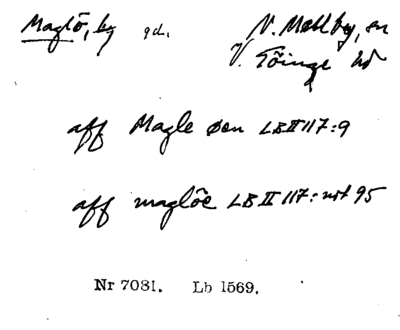 Maglö, by gd. N. Mellby, sn
V. Göinge hd
aff Magle øen LB II 117:9
aff magløe LB II 117: not 95
Nr 7081. Lb 1569.